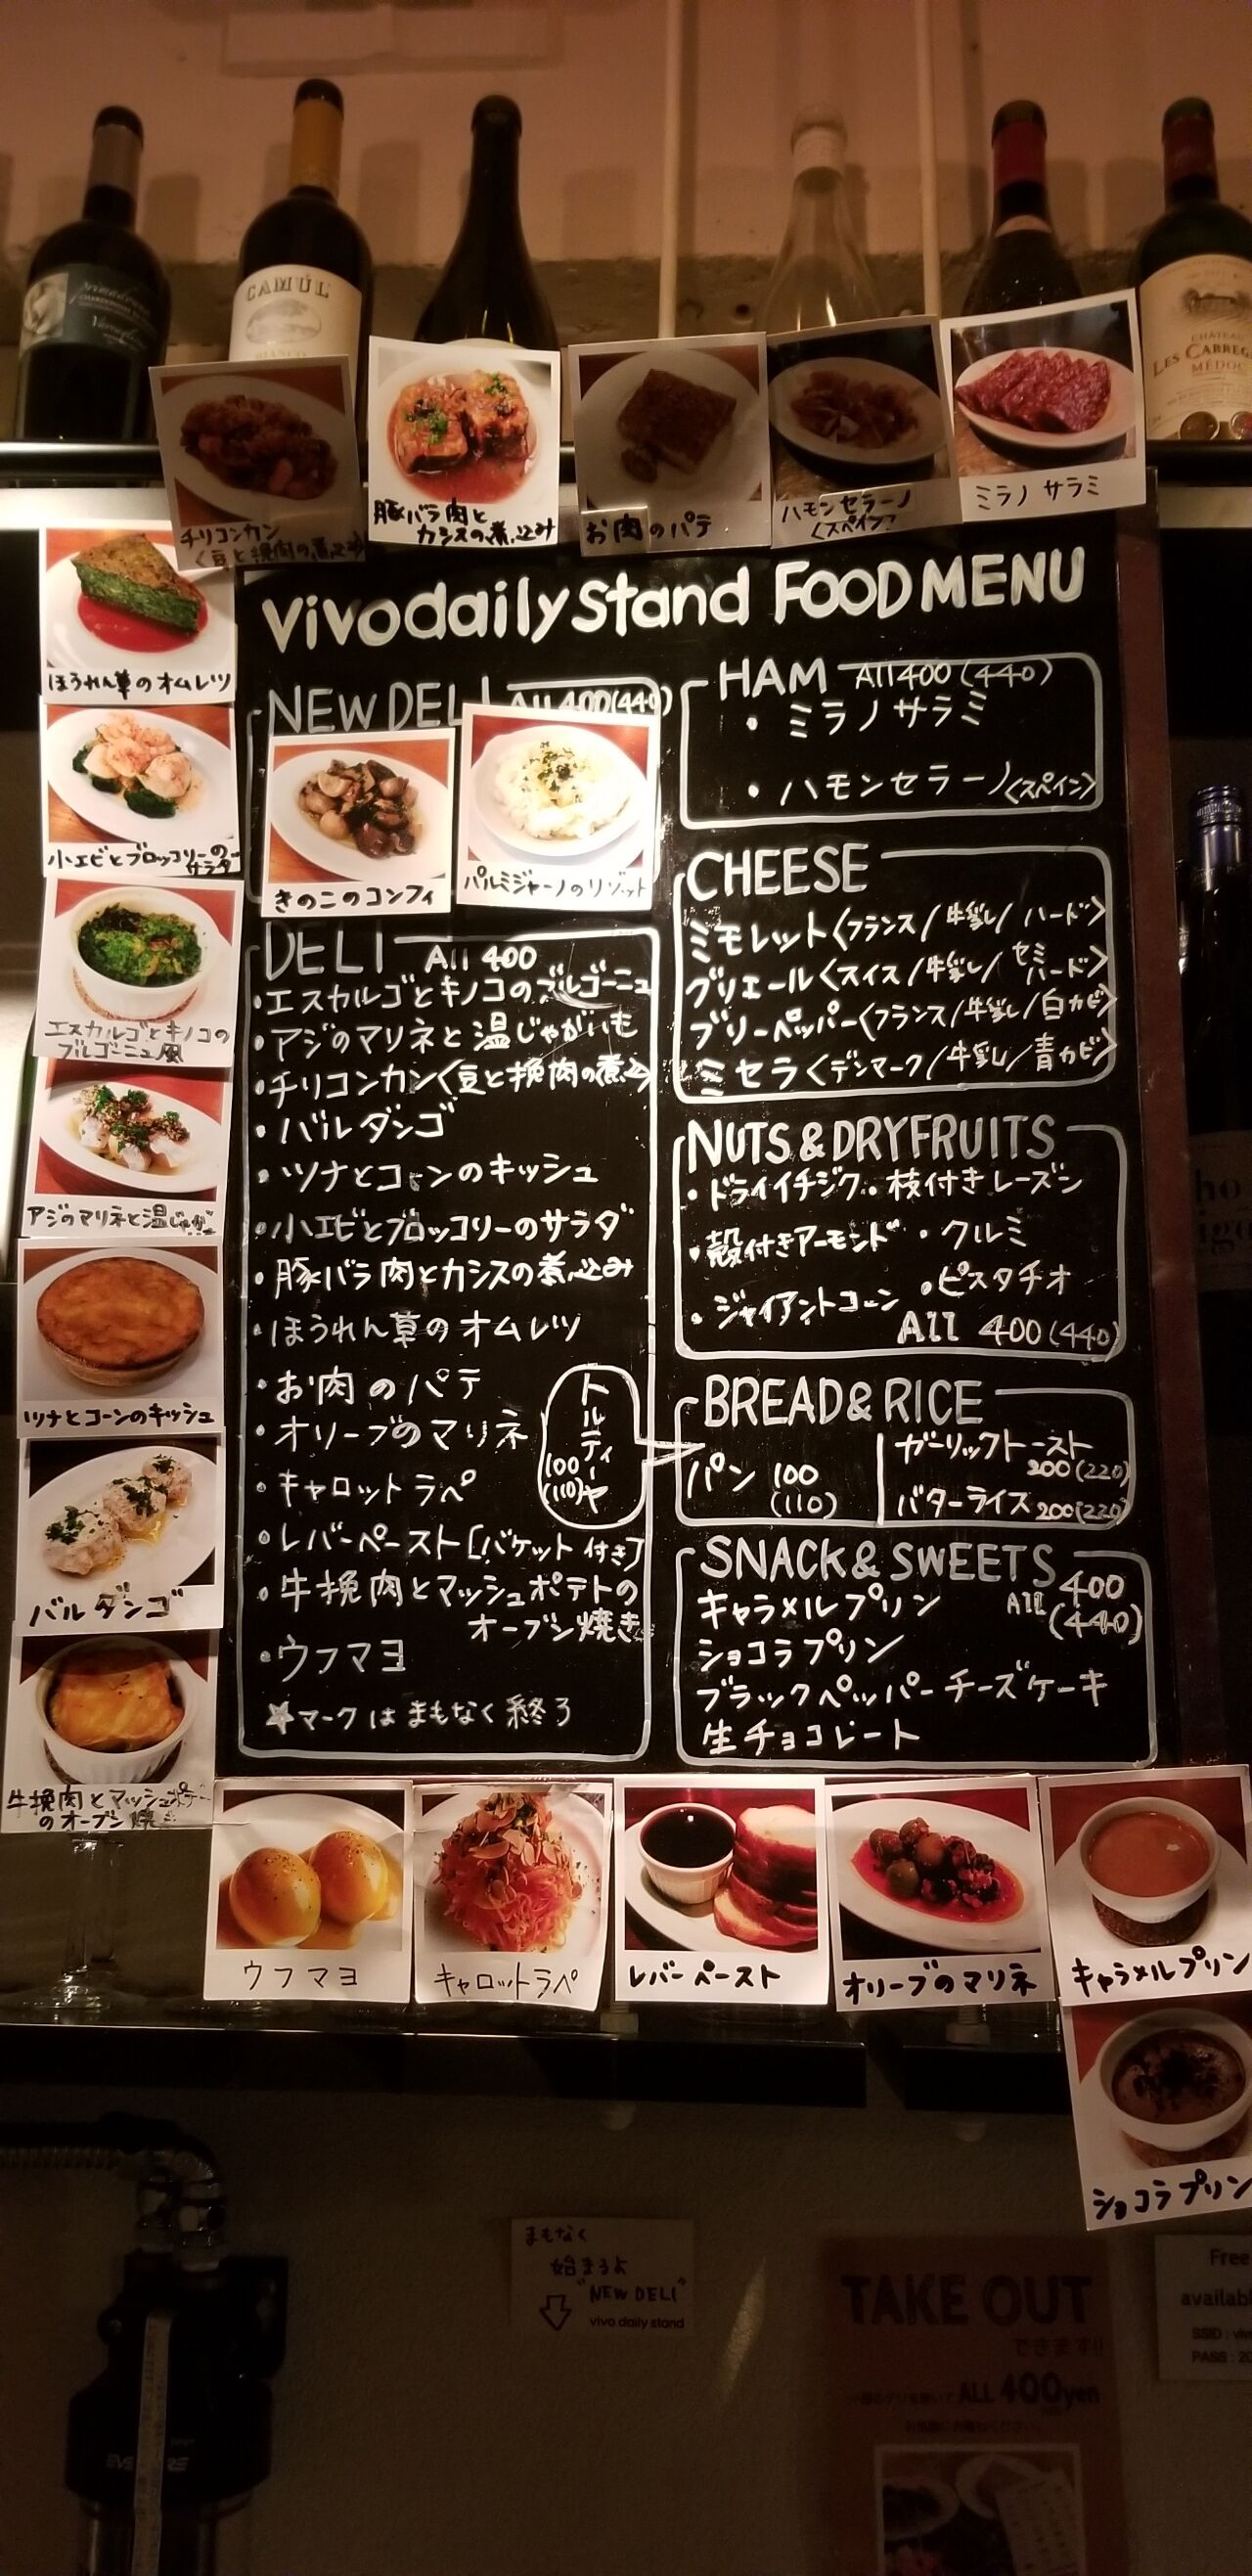 CAMÚL
BIANCO
CHÂTEAU
LES CARREG
MÉDOC
チリコンカン
〈豆と挽肉の煮込み
豚バラ肉と
カシスの煮込み
お肉のパテ
ハモンセラーノ
〈スペイン〉
ミラノサラミ
ほうれん草のオムレツ
小エビとブロッコリーの
サラダ
エスカルゴとキノコの
ブルゴーニュ風
アジのマリネと温じゃが
ツナとコーンのキッシュ
バルダンゴ
牛挽肉とマッシュポテ
のオーブン焼き
vivo daily stand FOOD MENU
NEW DELI All 400(440)
きのこのコンフィ
パルミジャーノのリゾット
DELI All 400
・エスカルゴとキノコのブルゴーニュ
・アジのマリネと温じゃがいも
・チリコンカン〈豆と挽肉の煮込〉
・バルダンゴ
・ツナとコーンのキッシュ
・小エビとブロッコリーのサラダ
・豚バラ肉とカシスの煮込み
・ほうれん草のオムレツ
・お肉のパテ
・オリーブのマリネ
・キャロットラペ
・レバーペースト[バケット付き]
・牛挽肉とマッシュポテトの
オーブン焼き
・ウフマヨ
☆マークはまもなく終了
トルティーヤ
100
(110)
HAM All 400(440)
・ミラノサラミ
・ハモンセラーノ〈スペイン〉
CHEESE
ミモレット〈フランス/牛乳/ハード〉
グリエール〈スイス/牛乳/セミハード〉
ブリーペッパー〈フランス/牛乳/白カビ〉
ミセラ〈デンマーク/牛乳/青カビ〉
NUTS & DRYFRUITS
・ドライイチジク ・枝付きレーズン
・殻付きアーモンド ・クルミ
・ジャイアントコーン ・ピスタチオ
All 400(440)
BREAD & RICE
パン 100
(110)
ガーリックトースト
200(220)
バターライス 200(220)
SNACK & SWEETS
All 400
(440)
キャラメルプリン
ショコラプリン
ブラックペッパーチーズケーキ
生チョコレート
ウフマヨ
キャロットラペ
レバーペースト
オリーブのマリネ
キャラメルプリン
ショコラプリン
まもなく
始まるよ
"NEW DELI"
vivo daily stand
TAKE OUT
できます!!
ALL 400yen
Free
availab
SSID : viv
PASS : 20